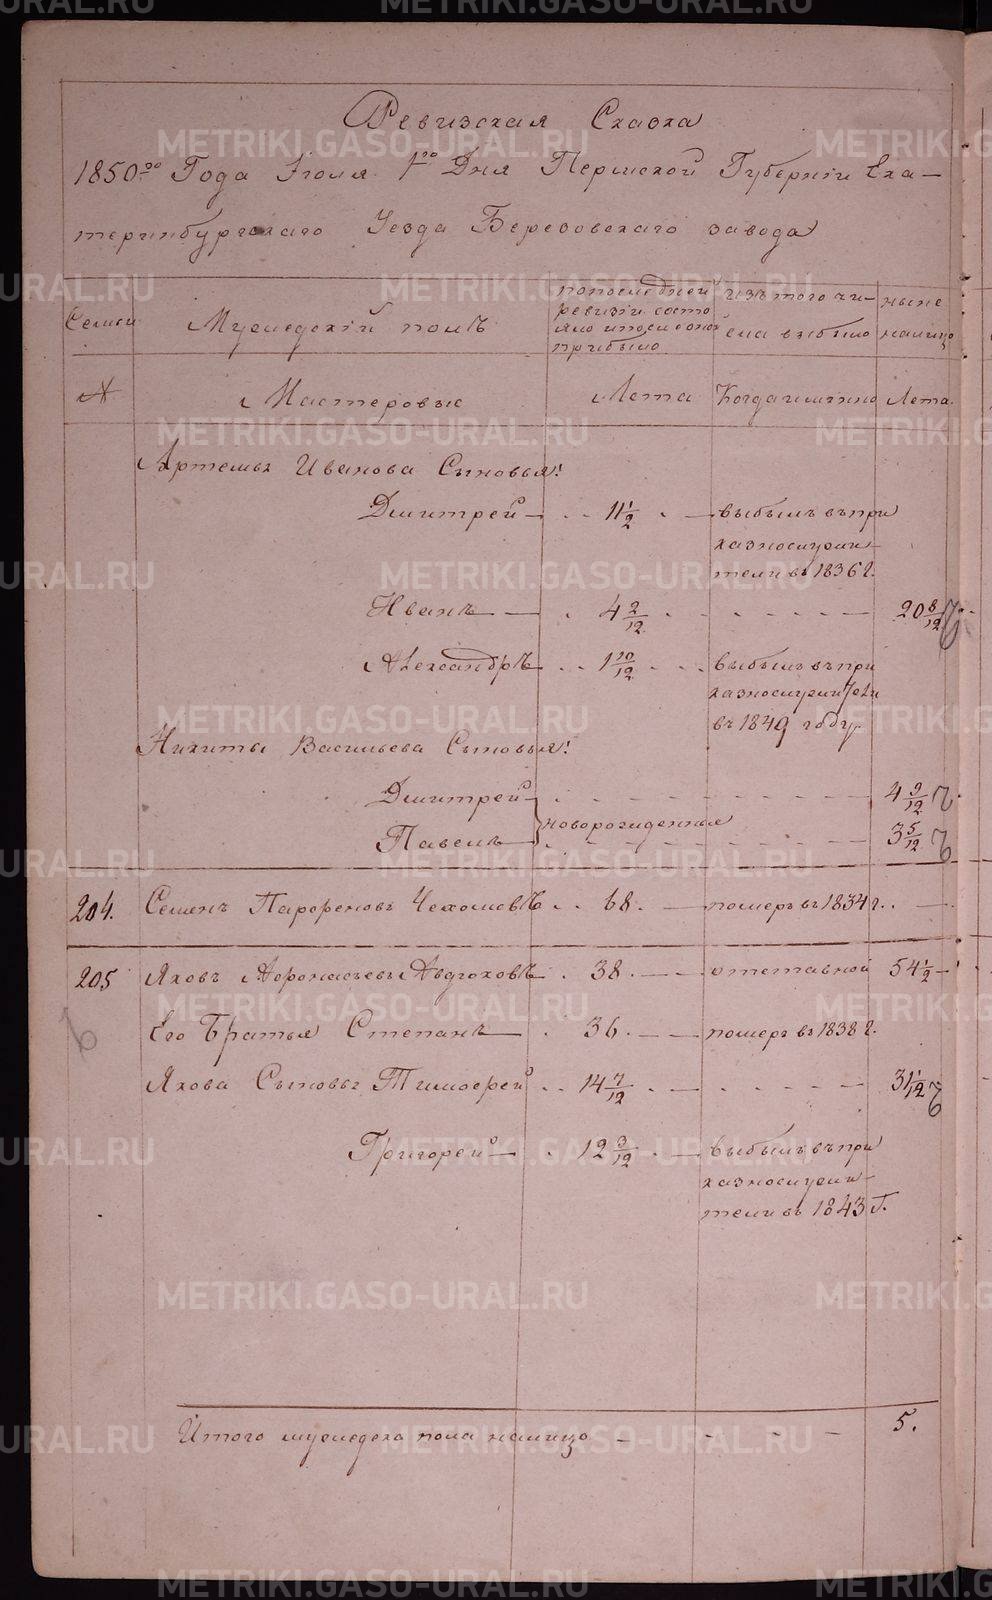 Ревизская Сказка
1850го Года Іюля 1го Дня Пермской Губерніи Ека-
теринбургскаго Уезда Березовскаго завода
Семьи Мужедскій полъ попоследней ревизіи состояло ипосле оной прибыло изътого чи-сла выбыло ныне налицо
№ Мастеровые Лета Когда имянно Лета.
Артемья Иванова Сыновья:
Дмитрей 11 1/2 выбылъ въпри
казнослужи-
тели въ 1836 г.
Иванъ 4 2/12 20 8/12
Александръ 1 10/12 выбылъ въпри
казнослужители
въ 1849 году
Никиты Васильева Сыновья:
Дмитрей 4 9/12
новорожденныя
Павелъ 3 5/12
204. Семенъ Парфеновъ Чехомовъ 68. померъ въ 1834 г.
205 Яковъ Афонасьевъ Авдюковъ 38. отставной 54 1/2
Его Братья Степанъ 36. померъ въ 1838 г.
Якова Сыновья Тимофей 14 7/12 31 1/12
Григорей 12 3/12 выбылъ въпри
казнослужи-
тели въ 1843 Г.
Итого мужедска пола налицо 5.
METRIKI.GASO-URAL.RU